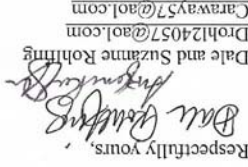 Respectfully yours,
Dale Rohlfing
Suzanne Rohlfing
Dale and Suzanne Rohlfing
Drohl24057@aol.com
Caraway57@aol.com